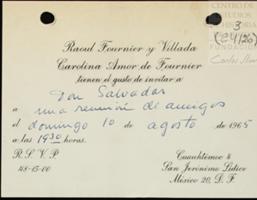 CENTRO DE
ESTUDIOS
3
(24/126)
FUNDACIÓN
Carlos Slim
Raoul Fournier y Villada
Carolina Amor de Fournier
tienen el gusto de invitar a
Don Salvador
a una reunión de amigos
el domingo 10 de agosto de 1965
a las 19 30 horas.
R. S. V. P.
48-15-00
Cuauhtémoc 4
San Jerónimo Lídice
México 20, D. F